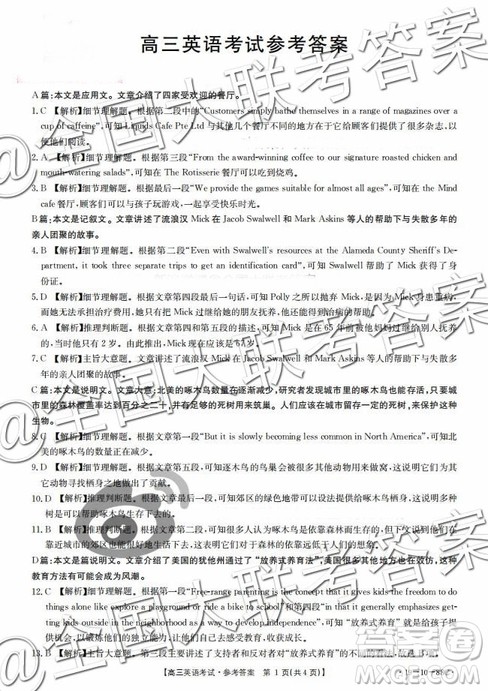 高三英语考试参考答案
A篇:本文是应用文。文章介绍了四家受欢迎的餐厅。
1. C 【解析】细节理解题。根据第二段中的“Customers simply bathe themselves in a range of magazines over a
cup of caffeine”,可知 Liquids Cafe Pte Ltd 与其他几个餐厅不同的地方在于它给顾客们提供了很多杂志,以
便他们阅读。
2. A 【解析】细节理解题。根据第三段“From the award-winning coffee to our signature roasted chicken and
mouth-watering salads”,可知在 The Rotisserie 餐厅可以吃到烧鸡。
3. B 【解析】细节理解题。根据最后一段“We provide the games suitable for almost all ages”,可知在 the Mind
cafe 餐厅,大家可以和孩子们玩游戏,一起享受快乐时光。
B篇:本文是记叙文。文章讲述了流浪汉 Mick 在 Jacob Swalwell 和 Mark Askins 等人的帮助下与失散多年的
亲人团聚的故事。
4. B 【解析】细节理解题。根据第二段“Even with Swalwell's resources at the Alameda County Sheriff's De-
partment, it took three separate trips to get an identification card”,可知 Swalwell 帮助了 Mick 获得了身
份证。
5. D 【解析】细节理解题。根据文章第四段最后一句话,可知 Polly 之所以抛弃 Mick,是因为 Mick 患有重病,
而她无法承担治疗费用,只能把他送给别的朋友抚养,他还能得到治病的帮助。
6. A 【解析】推理判断题。根据文章第四和第五段的描述,可知 Mick 是在 65 年前被他妈妈送给别人抚养
的,当时他只有 2 岁。由此推断,Mick 现在应该是 67 岁。
7. C 【解析】主旨大意题。文章讲述了流浪汉 Mick 在 Jacob Swalwell 和 Mark Askins 等人的帮助下与失散多
年的亲人团聚的故事。
C篇:本文是说明文。文章大意:北美的啄木鸟数量在逐渐减少,研究者发现城市里的啄木鸟也能存活,只要城
市里的森林覆盖率达到百分之二十,并存在足够的死树用来筑巢。人们应该在城市留存一定的死树,来保护这种
生物。
8. C 【解析】细节理解题。根据文章第一段“But it is slowly becoming less common in North America”,可知北
美啄木鸟的数量正在减少。
9. D 【解析】细节理解题。根据文章第三段,可知逐木鸟的巢域数量大,它们另建新巢穴,这样旧的就可以为其
它动物寻找栖身之处提供方便。
10. D 【解析】推理判断题。根据文章最后一段,可知郊区的绿色地带可以提供栖息地,郊区的死树也可以
帮助啄木鸟生存下去。
11. B 【解析】推理判断题。根据文章第二段,可知很多人认为啄木鸟是依靠森林而生存的,但是现在他们在
靠近城市的郊区找到了啄木鸟的存在,这与之前很多人认为啄木鸟对于森林的依靠有所矛盾。
D篇:本文是说明文。文章介绍了美国的犹他州通过了“放养式养育法”,美国很多其他地方也在效仿,这种
教育方法有可能会成为风潮。
12. C 【解析】细节理解题。根据文章第一段“Free-range parenting is the concept that it gives kids the freedom to do
things alone like explore a playground or ride a bike to school”和第四段“in that it generally emphasizes get-
ting kids outside in the neighborhoods as independently as they can”,可知“放养式养育”可以给孩子
独立自由。
13. B 【解析】主旨大意题。
【高三英语考试·参考答案 第 1 页(共 4 页)】
@全国大联考答案